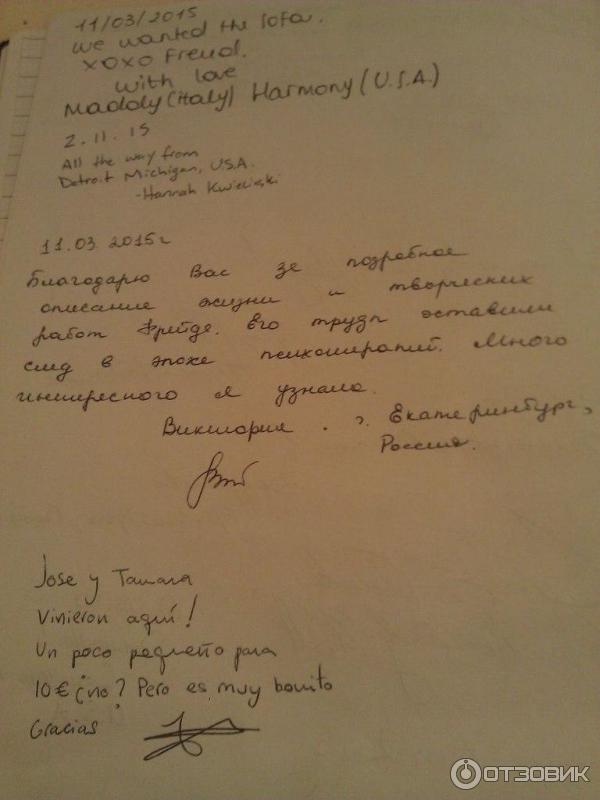 11/03/2015
We wanted the sofa.
xoxo Freud.
with love
Maddy (Italy) Harmony (U.S.A.)
2.11.15
All the way from
Detroit Michigan, U.S.A.
-Hannah
11.03.2015г
Благодарю Вас за подробное
описание жизни и творческих
работ Фрейда. Его труды оставили
след в эпохе психотерапий. Много
интересного я узнала.
Виктория. г. Екатеринбург,
Россия.
Jose y Tamara
Vinieron aquí!
Un poco pequeño para
10€ ¿no? Pero es muy bonito
Gracias
ОТЗОВИК